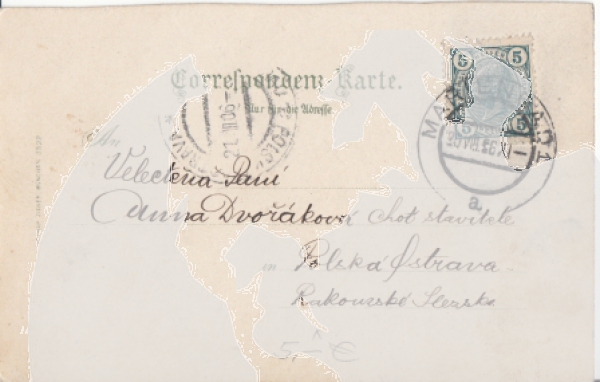 5 5
Correspondenz-Karte.
Nur für die Adresse
An
Velectěná Paní
Anna Dvořáková choť stavitele
in Polská Ostrava
Rakouzské Slezsko
5,- €